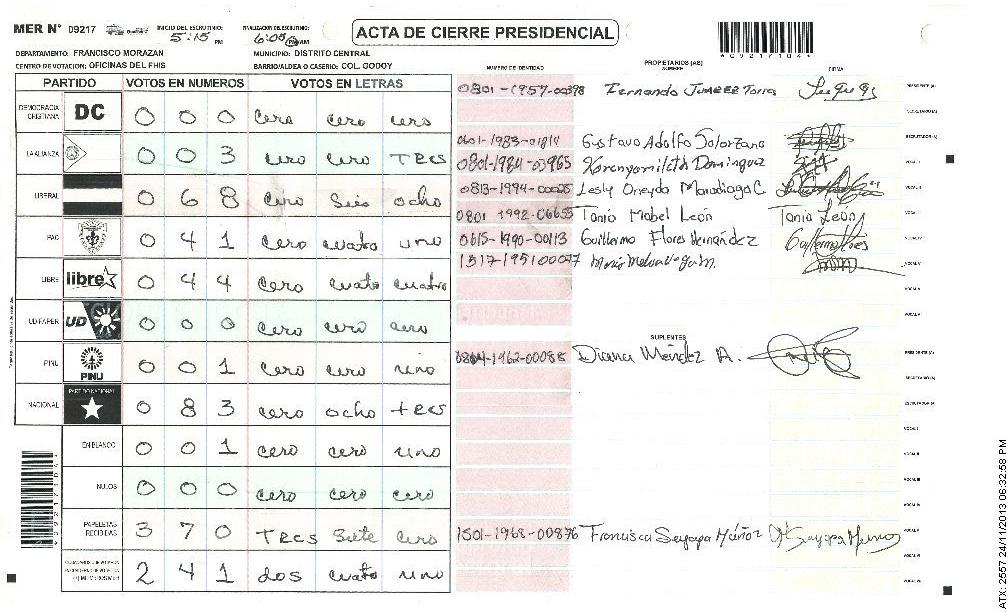 MER N° 09217 INICIO DEL ESCRUTINIO: 5:15 PM FINALIZACION DEL ESCRUTINIO: 6:05 PM AM ACTA DE CIERRE PRESIDENCIAL
DEPARTAMENTO: FRANCISCO MORAZAN MUNICIPIO: DISTRITO CENTRAL
CENTRO DE VOTACION: OFICINAS DEL FHIS BARRIO/ALDEA O CASERIO: COL. GODOY
NUMERO DE IDENTIDAD PROPIETARIOS (AS) NOMBRE FIRMA
PARTIDO VOTOS EN NUMEROS VOTOS EN LETRAS
DEMOCRACIA CRISTIANA DC 0 0 0 cero cero cero
LA ALIANZA 0 0 3 cero cero Tres
LIBERAL 0 6 8 cero Seis ocho
PAC 0 4 1 cero cuatro uno
LIBRE libre 0 4 4 cero cuato cuatro
UD FAPER UD 0 0 0 cero cero cero
PINU PINU 0 0 1 cero cero uno
NACIONAL PARTIDO NACIONAL 0 8 3 cero ocho tres
EN BLANCO 0 0 1 cero cero uno
NULOS 0 0 0 cero cero cero
PAPELETAS RECIBIDAS 3 7 0 Tres Siete cero
2 4 1 dos cuato uno
0801-1957-00398 Fernando Juarez Torres PRESIDENTE (A)
SECRETARIO (A)
Gustavo Adolfo Solorzano ESCRUTADOR (A)
0801-1984-03965 Dominguez VOCAL I
0813-1994- Lesly Oneyda VOCAL II
0801 1992-06655 Tania Mabel León Tania León VOCAL
0615-1990-00113 Guillermo Flores Hernández Guillermo Flores VOCAL IV
VOCAL V
SUPLENTES
-1962-00088 Diana Méndez A. PRESIDENTE (A)
SECRETARIO (A)
ESCRUTADOR (A)
VOCAL I
VOCAL II
VOCAL III
1501-1968-00876 Francisca Muñoz
ATX: 2557 24/11/2013 06:32:58 PM